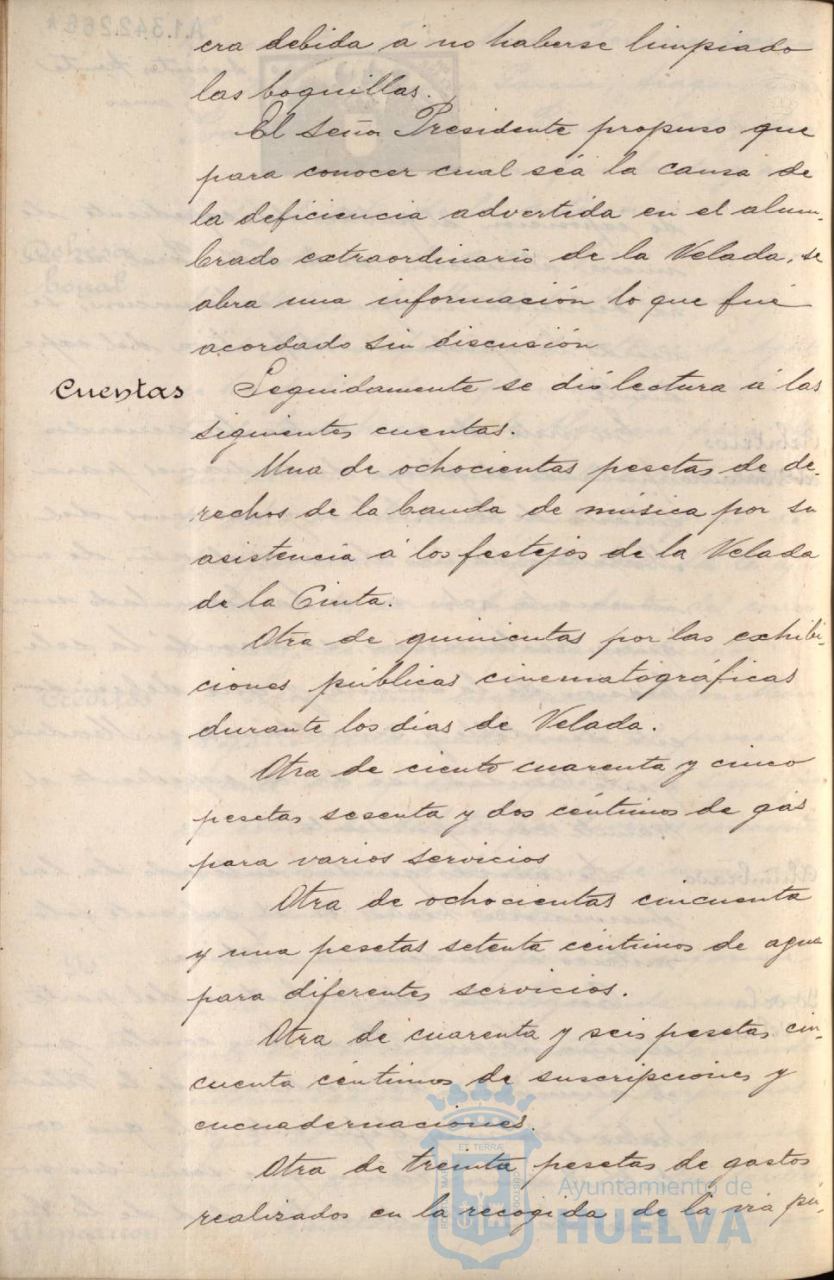 era debida á no haberse limpiado
las boquillas.
El Señor Presidente propuso que
para conocer cual séa la causa de
la deficiencia advertida en el alum-
brado extraordinario de la Velada, se
abra una información lo que fué
acordado sin discusión
Cuentas
Seguidamente se dió lectura á las
siguientes cuentas.
Una de ochocientas pesetas de de-
rechos de la banda de música por su
asistencia á los festejos de la Velada
de la Cinta.
Otra de quinientas por las exhibi-
ciones públicas cinematográficas
durante los dias de Velada.
Otra de ciento cuarenta y cinco
pesetas sesenta y dos céntimos de gas
para varios servicios
Otra de ochocientas cincuenta
y una pesetas setenta céntimos de agua
para diferentes servicios.
Otra de cuarenta y seis pesetas cin-
cuenta céntimos de suscripciones y
encuadernaciones.
Otra de treinta pesetas de gastos
realizados en la recogida de la via pú-
ET TERRA
Ayuntamiento de
HUELVA